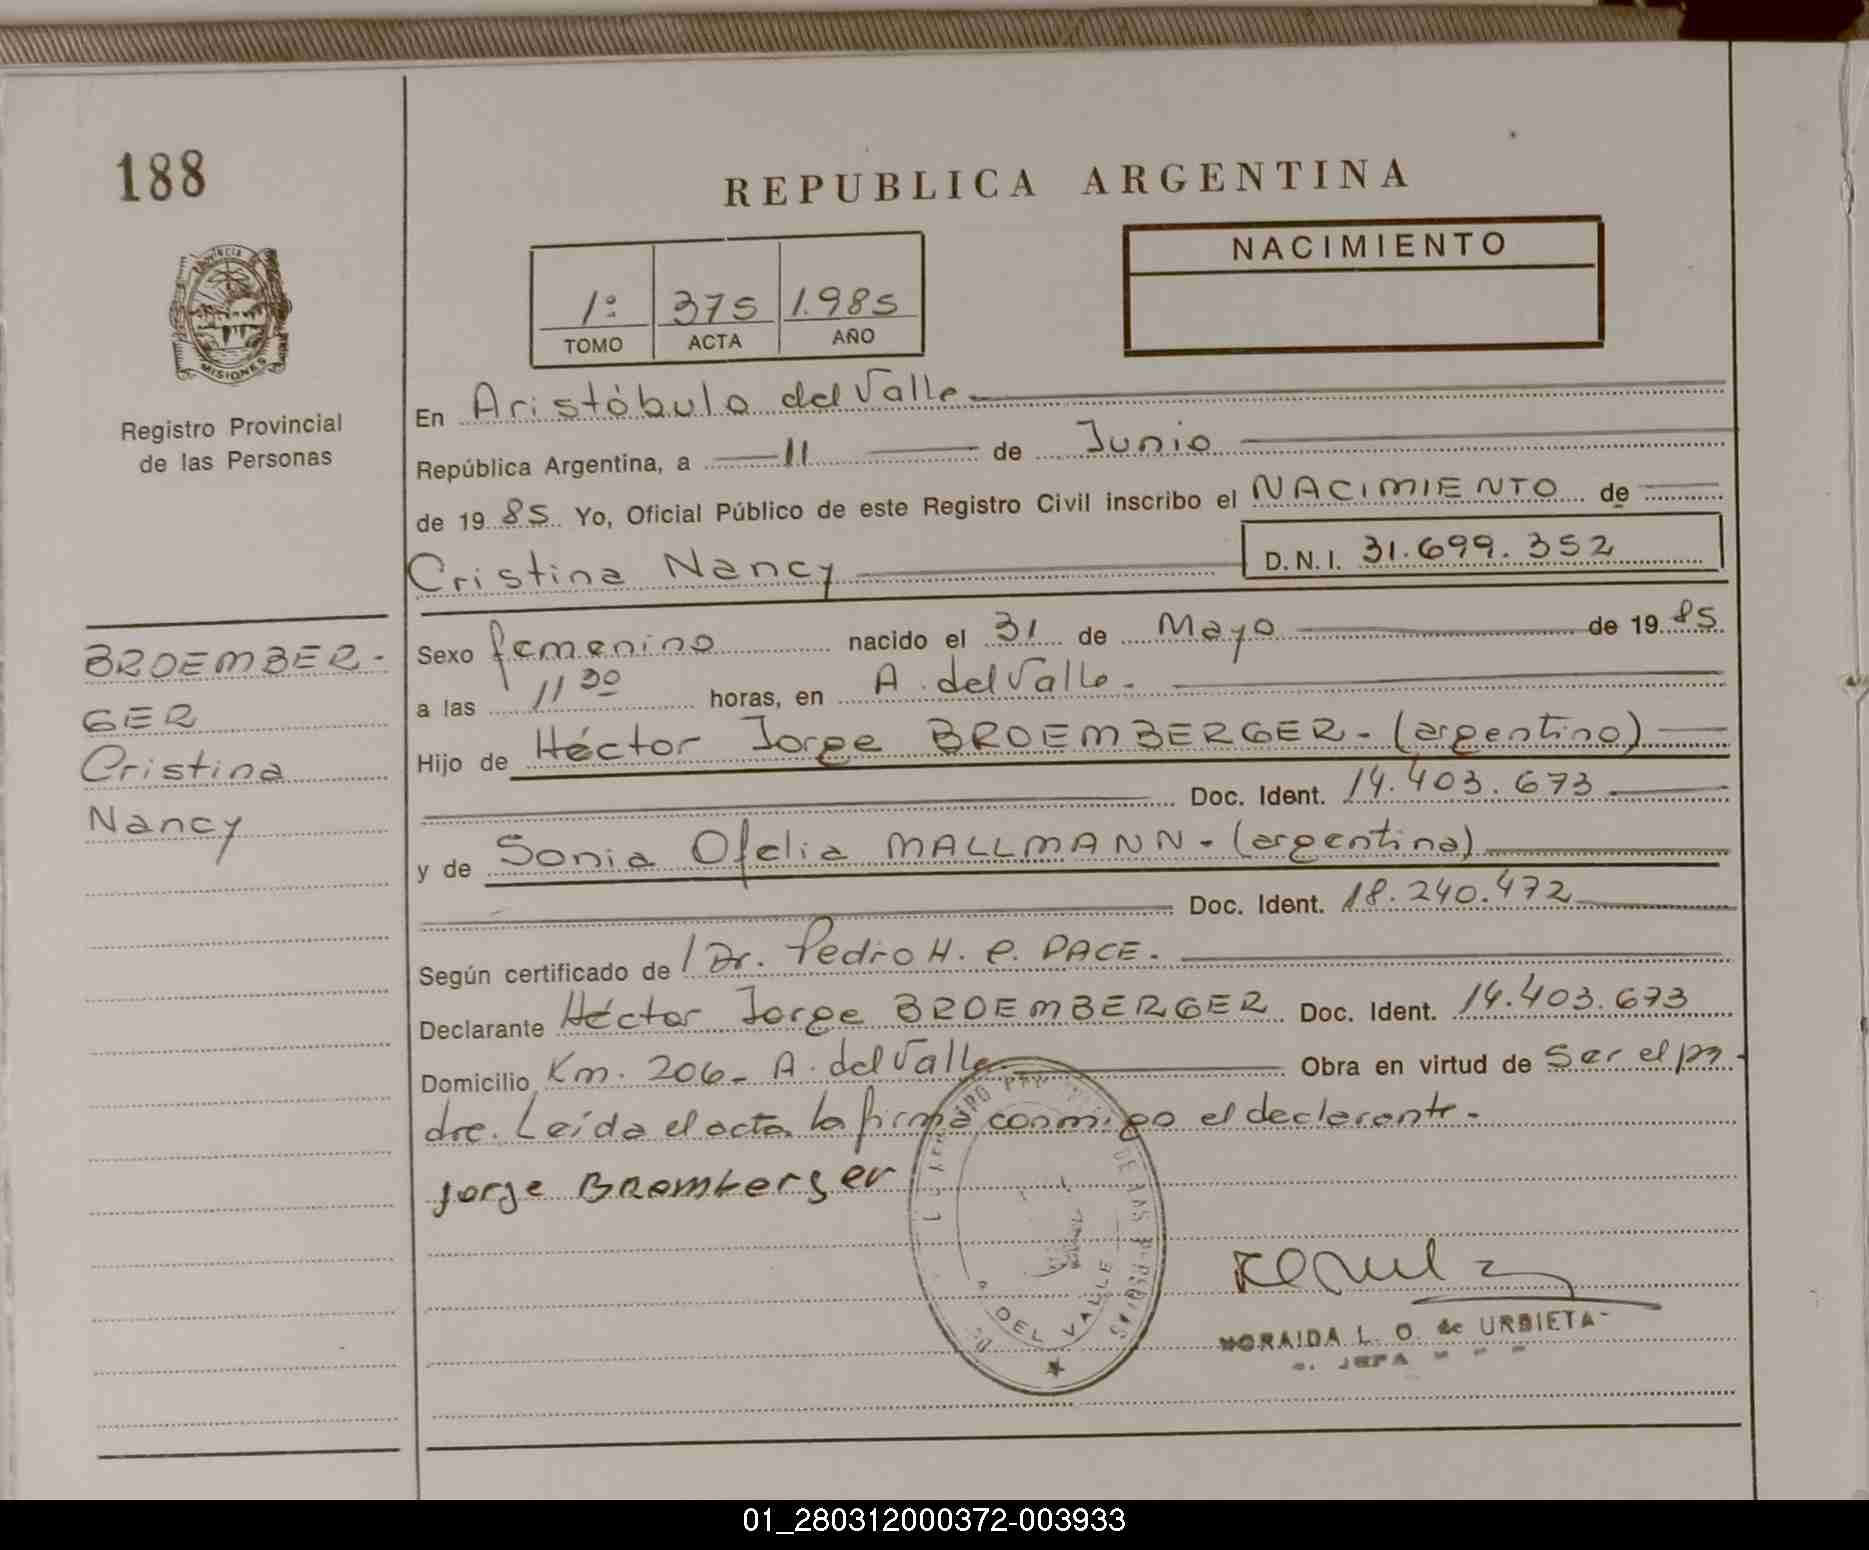 188
REPUBLICA ARGENTINA
PROVINCIA
MISIONES
Registro Provincial
de las Personas
1º 375 1.985
TOMO ACTA AÑO
NACIMIENTO
En Aristóbulo del Valle
República Argentina, a 11 de Junio
de 1985 Yo, Oficial Público de este Registro Civil inscribo el NACIMIENTO de
Cristina Nancy D.N.I. 31.699.352
BROEMBER-
GER
Cristina
Nancy
Sexo femenino nacido el 31 de Mayo de 1985
a las 11 30 horas, en A. del Valle.
Hijo de Héctor Jorge BROEMBERGER - (argentino)
Doc. Ident. 14.403.673
y de Sonia Ofelia MALLMANN - (argentina)
Doc. Ident. 18.240.472
Según certificado de Dr. Pedro H. C. PACE.
Declarante Héctor Jorge BROEMBERGER Doc. Ident. 14.403.673
Domicilio Km. 206 - A. del Valle Obra en virtud de ser el pa-
dre. Leída el acta la firma conmigo el declarante.
Jorge Bremberger
DE LAS PERSONAS
DEL VALLE
NORAIDA L. O. de URBIETA
JEFA
01_280312000372-003933